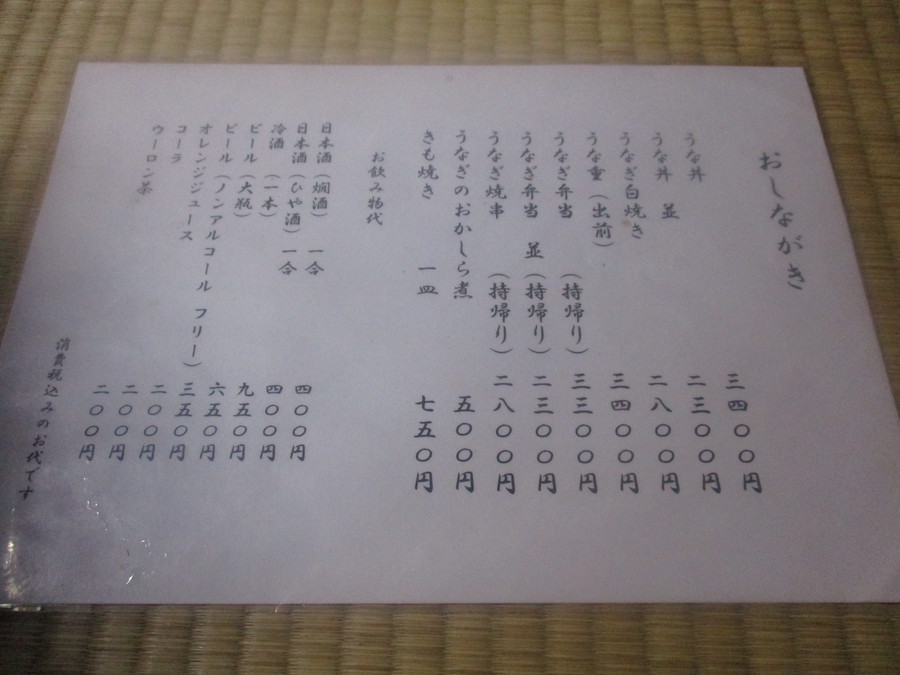 おしながき
うな丼 三四〇〇円
うな丼 並 二三〇〇円
うなぎ白焼き 二八〇〇円
うな重(出前) 三四〇〇円
うなぎ弁当 (持帰り) 三三〇〇円
うなぎ弁当 並(持帰り) 二三〇〇円
うなぎ焼串 (持帰り) 二八〇〇円
うなぎのおかしら煮 五〇〇円
きも焼き 一皿 七五〇円
お飲み物代
日本酒(燗酒) 一合 四〇〇円
日本酒(ひや酒)一合 四〇〇円
冷酒 (一本) 九五〇円
ビール(大瓶) 六五〇円
ビール(ノンアルコール フリー) 三五〇円
オレンジジュース 二〇〇円
コーラ 二〇〇円
ウーロン茶 二〇〇円
消費税込みのお代です